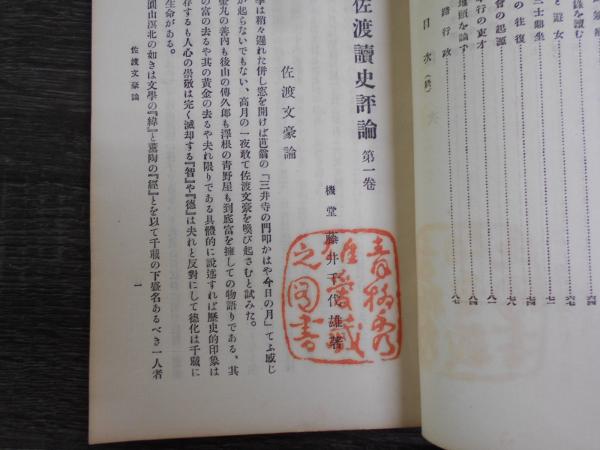 錄を讀む
と遊女
三士郎坐
の往復
會の起源
奉行の吏才
地頭を論ず
行政
目次(終)
六四
六七
七四
七六
七九
八一
八四
八七
佐渡讀史評論 第一卷
機堂 藤井千代雄著
佐渡文豪論
季は稍々遲れた併し窓を開けば芭翁の『三井寺の門叩かはや今日の月』てふ感じ
が起らないでもない、高月の一夜敢て佐渡文豪を喚び起さむと試みた。
丸の善內も後山の傳久郎も澤根の靑野屋も到底富を擁しての物語りである、其
の富の去るや其の黃金の去るや夫れ限りである具體的に說述すれば歷史的印象は
存するも人心の崇敬は完く滅却する『智』や『德』は夫れと反對にして德化は千載に
生命がある。
圓山溟北の如きは文學の『緯』と薰陶の『經』とを以て千載の下臺名あるべき一人者
佐渡文豪論
一
雄愛藏
之圖書